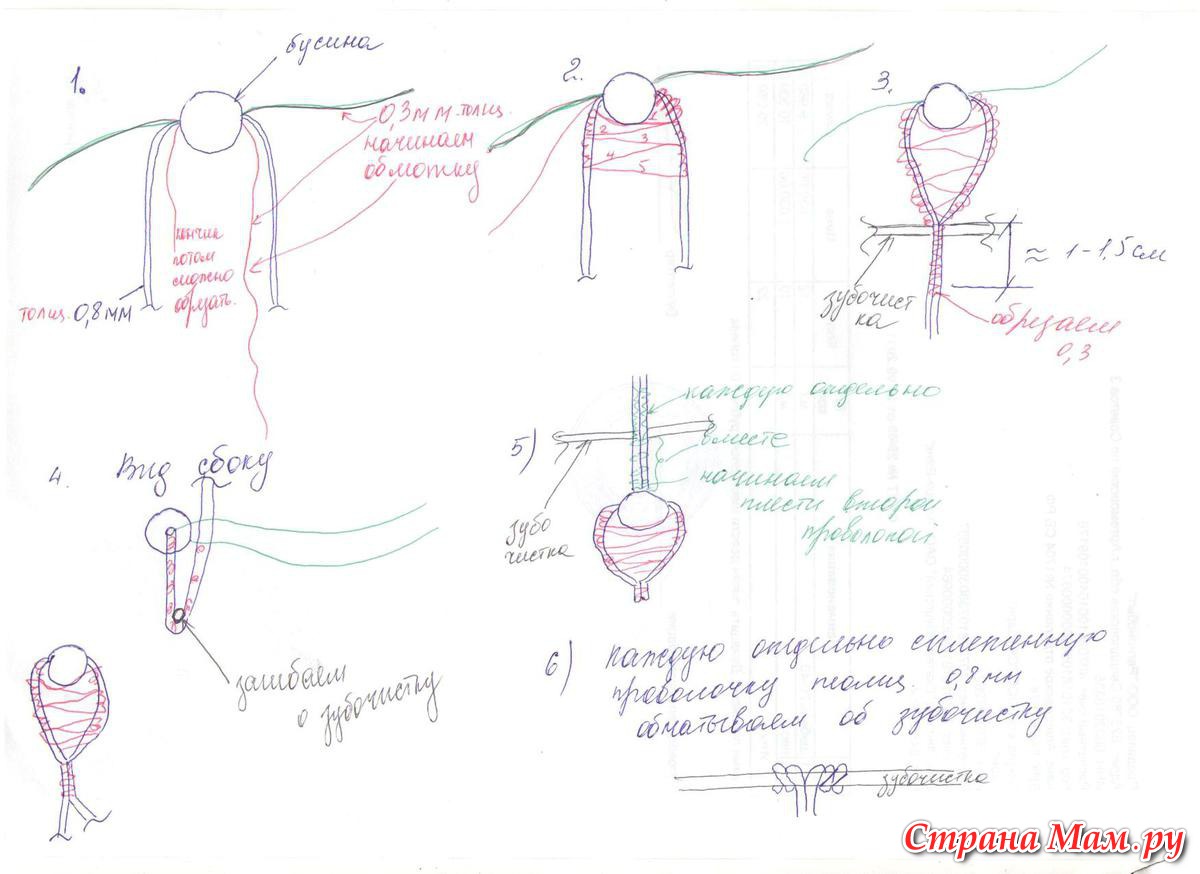 1.
бусина
0,3 мм. толщ.
начинаем
обмотку
кончик
потом
можно
обрезать.
толщ. 0,8 мм
2.
1
2
3
4
5
3.
≈ 1-1,5 см
зубочист
ка
обрезаем
0,3
4.
Вид сбоку
загибаем
о зубочистку
5)
каждую отдельно
вместе
начинаем
плести второй
проволокой
зубо
чистка
6) каждую отдельно сплетенную
проволочку толщ. 0,8 мм
обматываем об зубочистку
зубочистка
Страна Мам.ру